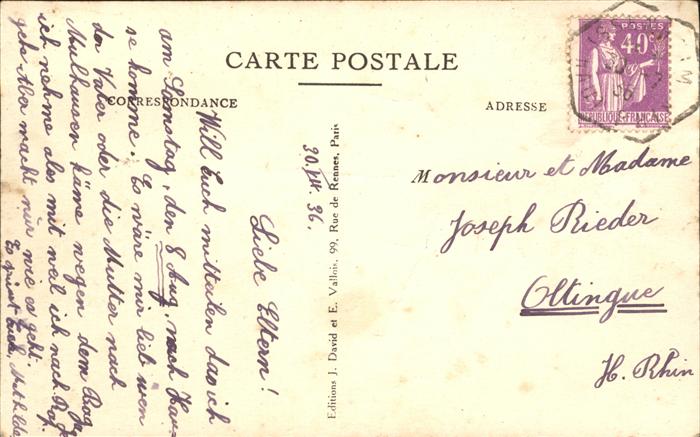 CARTE POSTALE
CORRESPONDANCE
ADRESSE
POSTES
40c
REPUBLIQUE FRANÇAISE
30.VII.36.
Liebe Eltern!
Will Euch mitteilen das ich
am Samstag, den 8 Aug, nach Haus
se komme. Es wäre mir lieb wen
der Vater oder die Mutter nach
Mulhausen käme wegen dem
ich nehme ales mit weil ich nach
geh. Aber macht nur wie es geht.
Es grüsst Euch, Mathilde
Editions J. David et E. Vallois, 99, Rue de Rennes, Paris
Monsieur et Madame
Joseph Rieder
Oltingue
H. Rhin